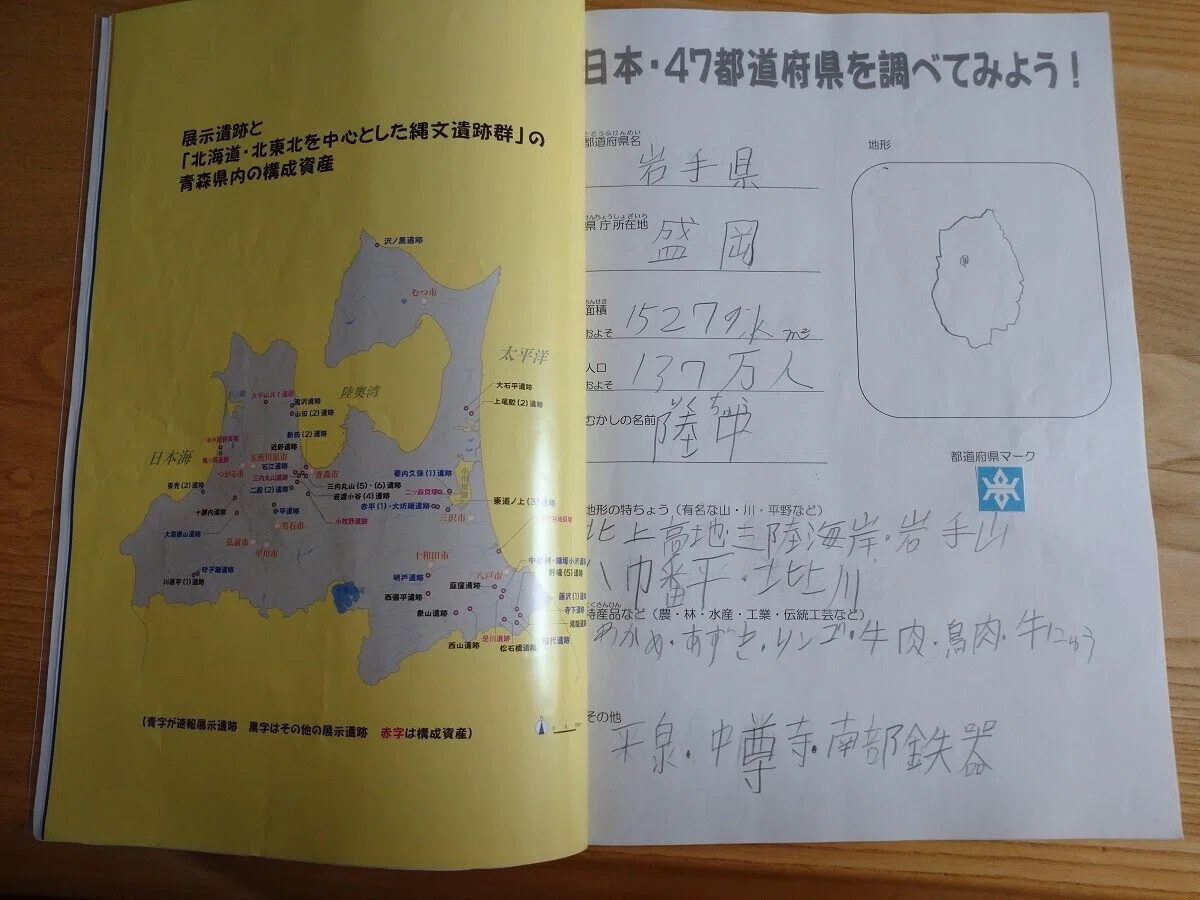 展示遺跡と
「北海道・北東北を中心とした縄文遺跡群」の
青森県内の構成資産
沢ノ黒遺跡
むつ市
太平洋
陸奥湾
日本海
大石平遺跡
上尾駮(2)遺跡
大平山元I遺跡
滝沢遺跡
山田(2)遺跡
新田(2)遺跡
近野遺跡
田小屋野貝塚
亀ヶ岡遺跡
五所川原市
つがる市
石江遺跡
青森市
三内丸山遺跡
三内丸山(5)・(6)遺跡
二股(2)遺跡
岩渡小谷(4)遺跡
都内久保(1)遺跡
二ツ森貝塚
小川原湖
赤平(1)・大坊頭遺跡
東道ノ上(3)遺跡
十腰内遺跡
小平遺跡
小牧野遺跡
三沢市
大森勝山遺跡
黒石市
弘前市
平川市
砂子瀬遺跡
川原平(1)遺跡
十和田市
八戸市
明戸遺跡
韮窪遺跡
西張平遺跡
泉山遺跡
野場(5)遺跡
藤沢(1)遺
寺下遺跡
西山遺跡
是川遺跡
松石橋遺跡
(青字が速報展示遺跡 黒字はその他の展示遺跡 赤字は構成資産)
日本・47都道府県を調べてみよう!
都道府県名
とどうふけんめい
岩手県
県庁所在地
けんちょうしょざいち
盛岡
面積
めんせき
およそ
人口
およそ 137万人
むかしの名前
陸中
りくちゅう
地形
都道府県マーク
地形の特ちょう(有名な山・川・平野など)
北上高地・三陸海岸・岩手山
八巾番平・北上川
特産品など(農・林・水産・工業・伝統工芸など)
わかめ・あずき・リンゴ・牛肉・鳥肉・牛にゅう
その他
平泉・中尊寺・南部鉄器